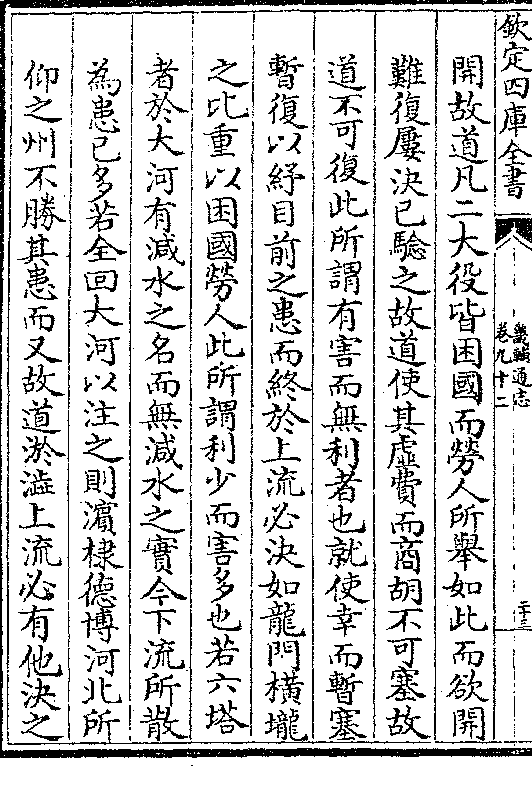 欽定四庫全書
畿輔通志
卷九十二
二十三
開故道凡二大役皆困國而勞人所舉如此而欲開
難復屢決已驗之故道使其虛費而商胡不可塞故
道不可復此所謂有害而無利者也就使幸而暫塞
暫復以紓目前之患而終於上流必決如龍門橫壠
之比重以困國勞人此所謂利少而害多也若六塔
者於大河有減水之名而無減水之實今下流所散
為患已多若全回大河以注之則濵棣德博河北所
仰之州不勝其患而又故道淤澁上流必有他決之